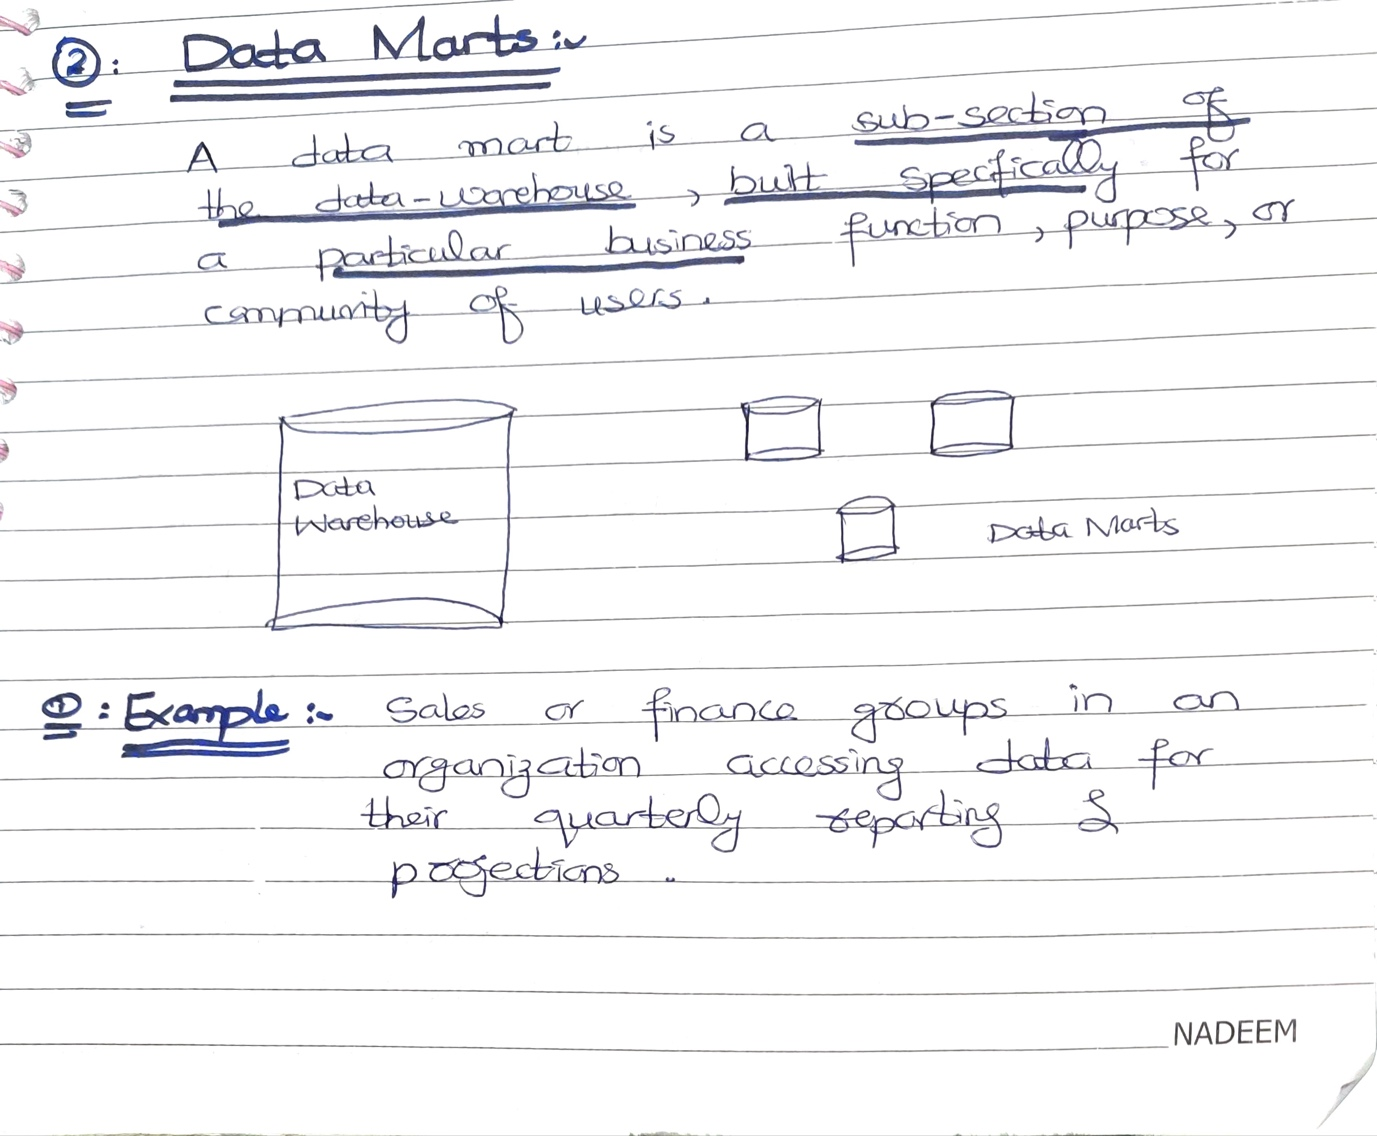 ②: Data Marts:~
A data mart is a sub-section of
the data-warehouse, built specfically for
a particular business function, purpose, or
community of users.
Data
Warehouse
Data Marts
①: Example :~ Sales or finance groups in an
organization accessing data for
their quarterly reporting &
projections .
NADEEM